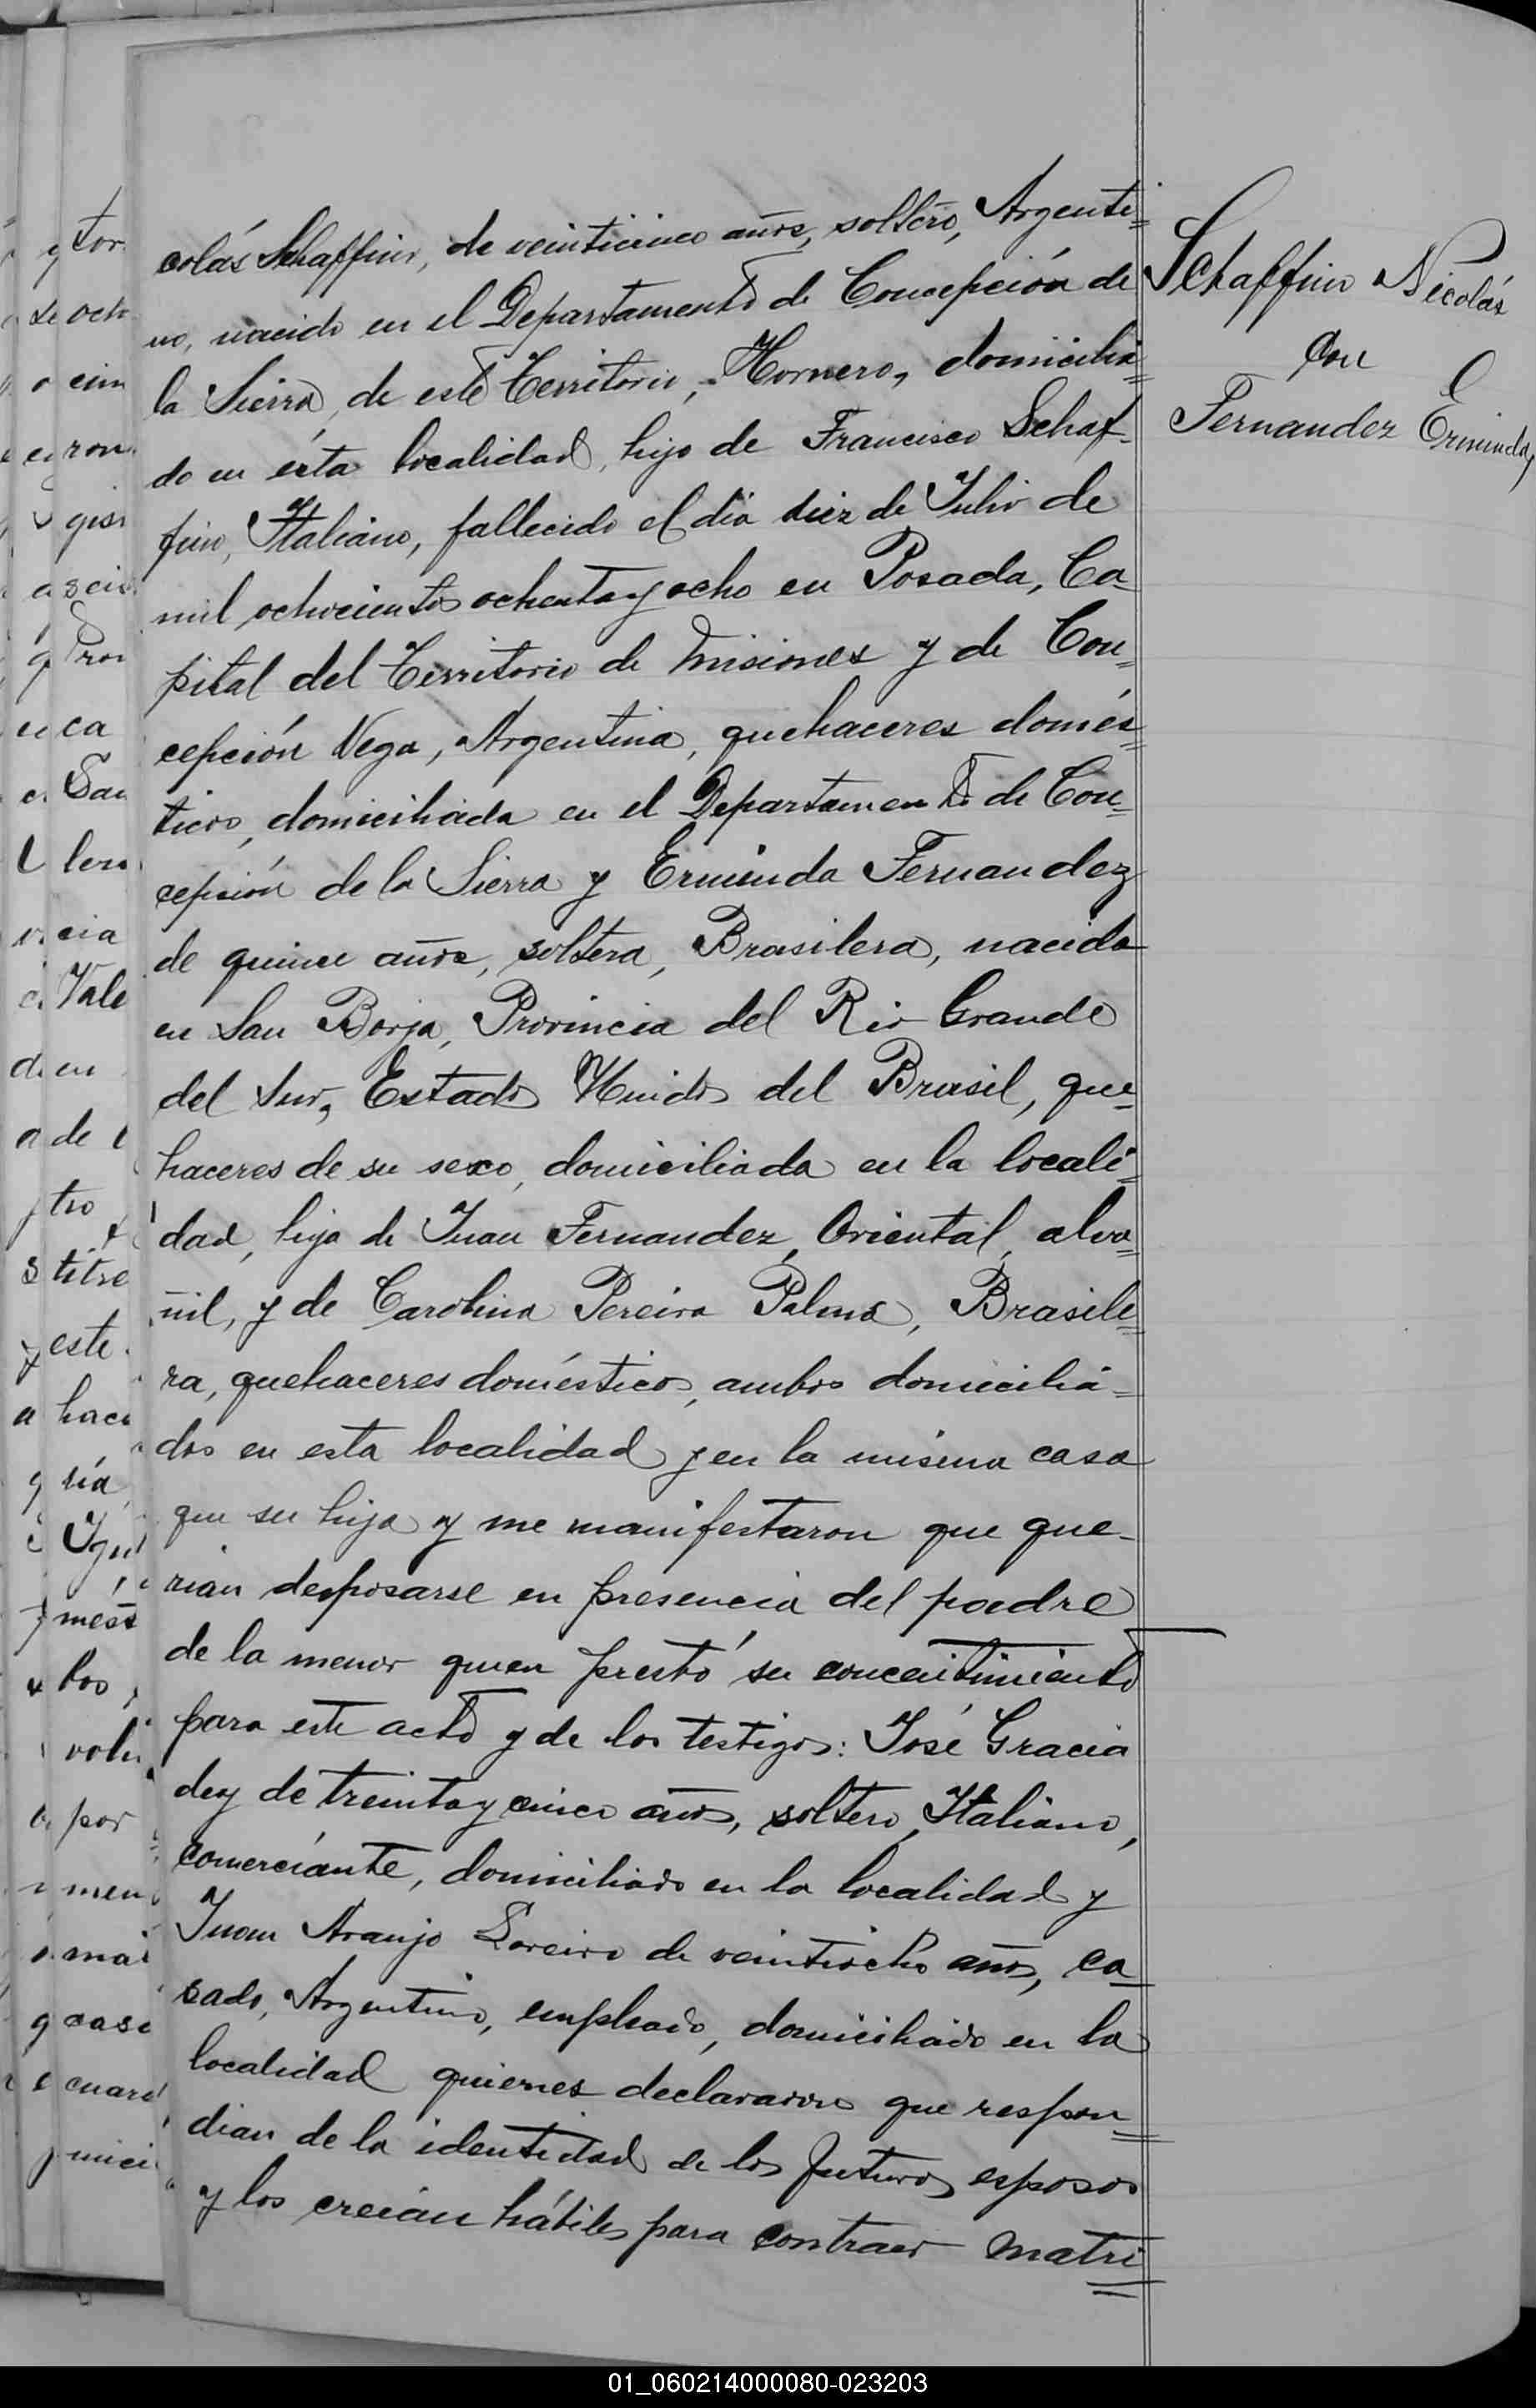 colás Schaffino, de veinticinco años, soltero, Argenti=
no, nacido en el Departamento de Concepción de
la Sierra, de este Territorio, Hornero, domicilia=
do en ésta localidad, hijo de Francisco Schaf-
fino, Italiano, fallecido el dia diez de Julio de
mil ochocientos ochenta y ocho en Posada, Ca-
pital del Territorio de Misiones y de Con=
cepción Vega, Argentina, quehaceres domés=
ticos, domiciliada en el Departamento de Con=
cepción de la Sierra y Erminda Fernandez
de quince años, soltera, Brasilera, nacida
en San Borja, Provincia del Rio Grande
del Sur, Estados Unidos del Brasil, que=
haceres de su sexo, domiciliada en la locali=
dad, hija de Juan Fernandez, Oriental, alva=
ñil, y de Carolina Pereira Palma, Brasile=
ra, quehaceres doméstico, ambos domicilia=
dos en esta localidad y en la misma casa
que su hija y me manifestaron que que-
rian desposarse en presencia del padre
de la menor quien prestó su concentimiento
para este acto y de los testigos: José Gracia
dey de treinta y cinco años, soltero, Italiano,
comerciante, domiciliado en la localidad y
Juan Araujo Loreiro de veintiocho años, ca=
sado, Argentino, empleado, domiciliado en la
localidad quienes declararon que respon=
dian de la identidad de los futuros esposos
y los creían hábiles para contraer matri=
Schaffino Nicolás
con
Fernandez Erminda,
tor
se och
cim
ron
gis
ca
San
cia
Vale
en
de
tro
titre
este
hace
ria
mest
por
men
mai
casa
cuare
01_060214000080-023203